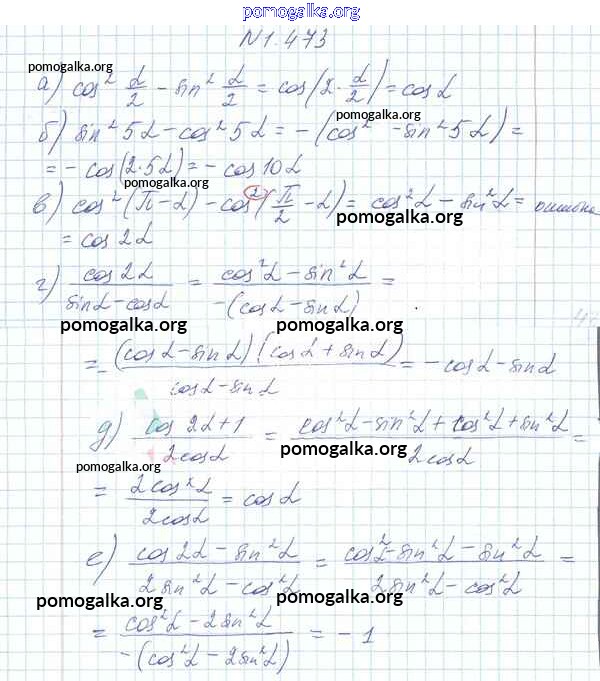 pomogalka.org
N1.473
pomogalka.org
а) cos² α/2 - sin² α/2 = cos(2·α/2) = cos α
б) sin² 5α - cos² 5α = -(cos² - sin² 5α) =
= - cos(2·5α) = - cos 10α
pomogalka.org
в) cos² (π-α) - cos² (π/2 - α) = cos² α - sin² α = ошибка
pomogalka.org
= cos 2α
г) cos 2α / sin α - cos α = cos² α - sin² α / -(cos α - sin α) =
pomogalka.org pomogalka.org
= - (cos α - sin α)(cos α + sin α) / cos α - sin α = - cos α - sin α
pomogalka.org
д) cos 2α + 1 / 2cos α = cos² α - sin² α + cos² α + sin² α / 2cos α =
pomogalka.org
pomogalka.org
= 2cos² α / 2cos α = cos α
е) cos 2α - sin² α / 2sin² α - cos² α = cos² α - sin² α - sin² α / 2sin² α - cos² α =
pomogalka.org pomogalka.org
= cos² α - 2sin² α / -(cos² α - 2sin² α) = - 1